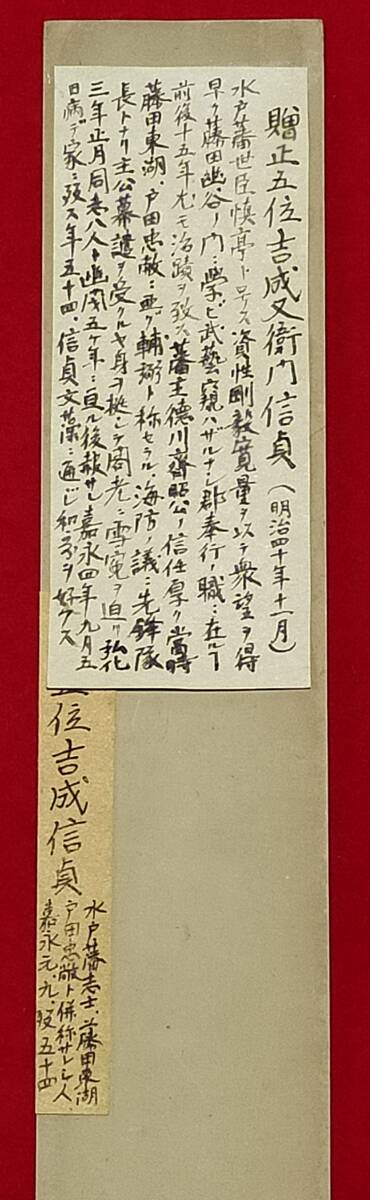 贈正五位吉成又衛門信貞(明治四十年十一月)
水戸藩世臣慎亭ト号ス資性剛毅寛量ヲ以テ衆望ヲ得
早ク藤田幽谷ノ門ニ学ビ武藝窺ハザルナシ郡奉行ノ職ニ在ルコト
前後十五年尤モ治蹟ヲ致ス藩主徳川齊昭公ノ信任厚ク當時
藤田東湖、戸田忠敞ニ亜ク輔弼ト称セラル海防ノ議ニ先鋒隊
長トナリ主公幕譴ヲ受クルヤ身ヲ挺シテ閣老ニ雪寃ヲ迫リ弘化
三年正月同志八人ト幽閉五ケ年ニ亘ル後赦サレ嘉永四年九月五
日病デ家ニ歿ス年五十四、信貞文藻ニ通ジ和歌ヲ好クス
五位吉成信貞
水戸藩志士、藤田東湖
戸田忠敞ト併称サレシ人
嘉永元、九、歿 五十四